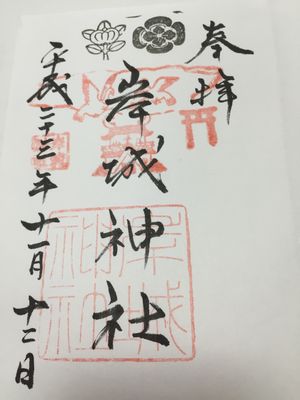 奉拝
岸城神社
平成二十三年十一月十二日